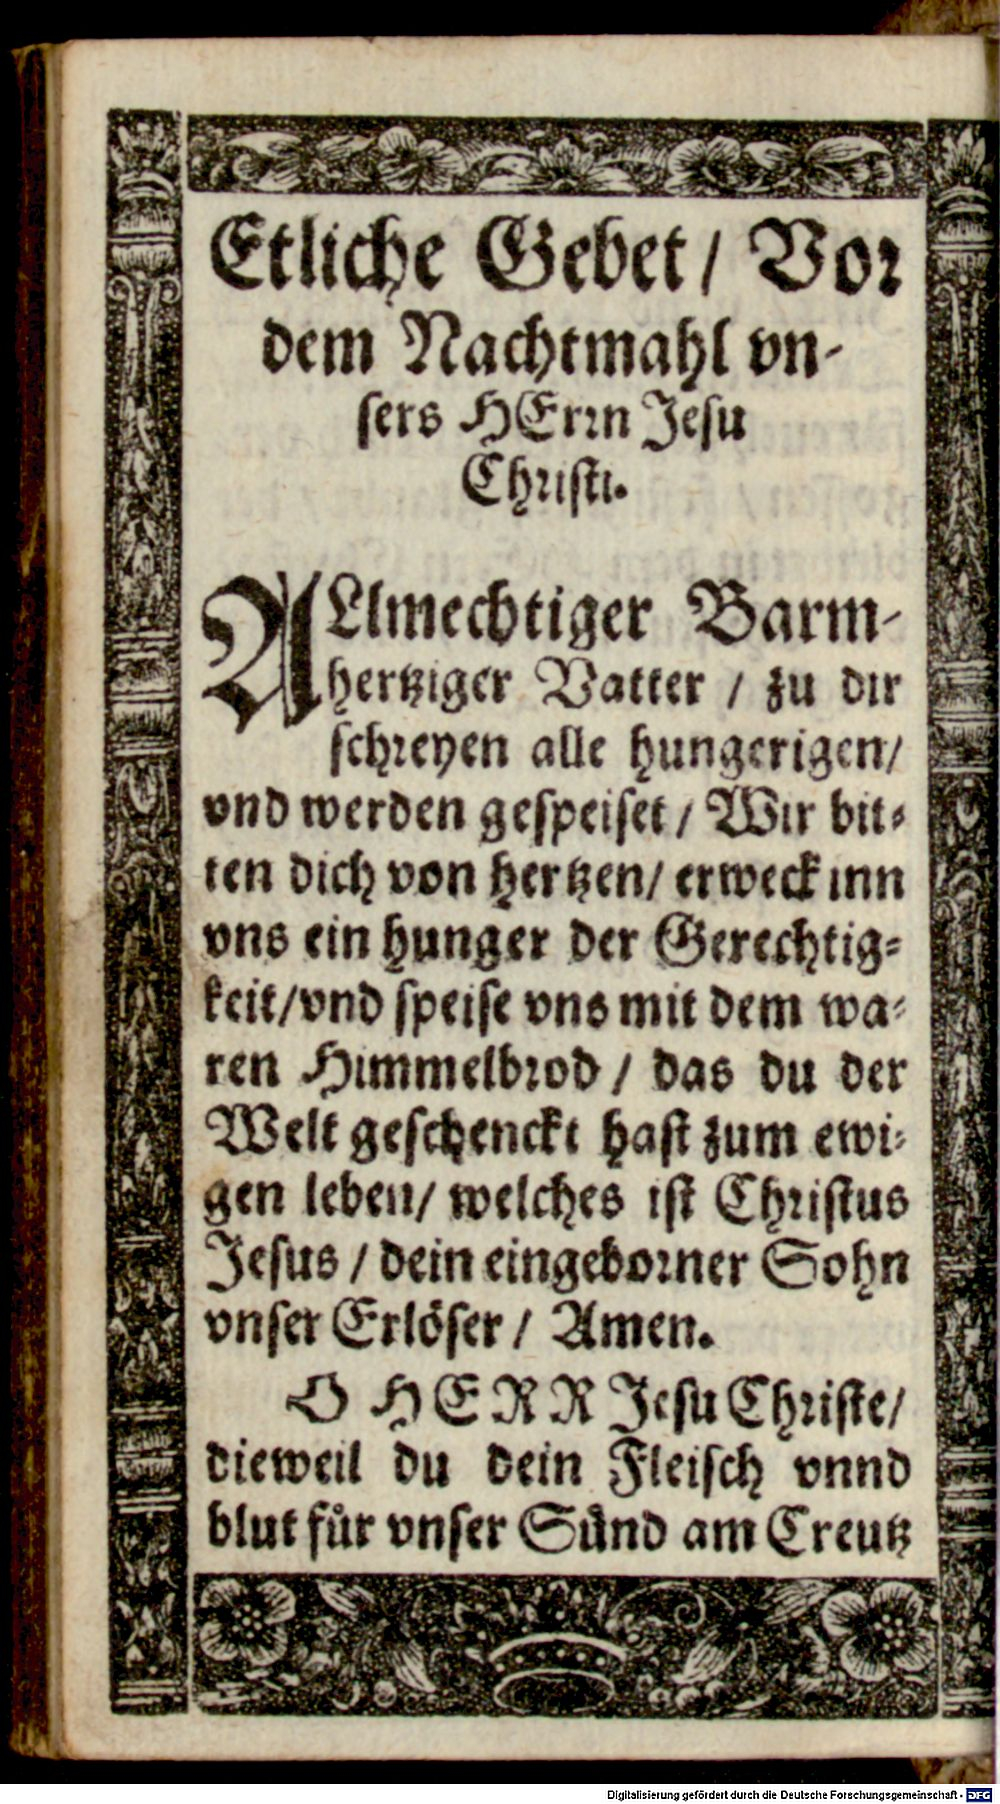 Etliche Gebet / Vor
dem Nachtmahl vn-
sers HErrn Jesu
Christi.
ALlmechtiger Barm-
hertziger Vatter / zu dir
schreyen alle hungerigen/
vnd werden gespeiset / Wir bit-
ten dich von hertzen/ erweck inn
vns ein hunger der Gerechtig-
keit/vnd speise vns mit dem wa-
ren Himmelbrod / das du der
Welt geschenckt hast zum ewi-
gen leben/ welches ist Christus
Jesus / dein eingeborner Sohn
vnser Erlöser / Amen.
O HERR Jesu Christe/
dieweil du dein Fleisch vnnd
blut fuͤr vnser Suͤnd am Creutz
Digitalisierung gefördert durch die Deutsche Forschungsgemeinschaft - DFG